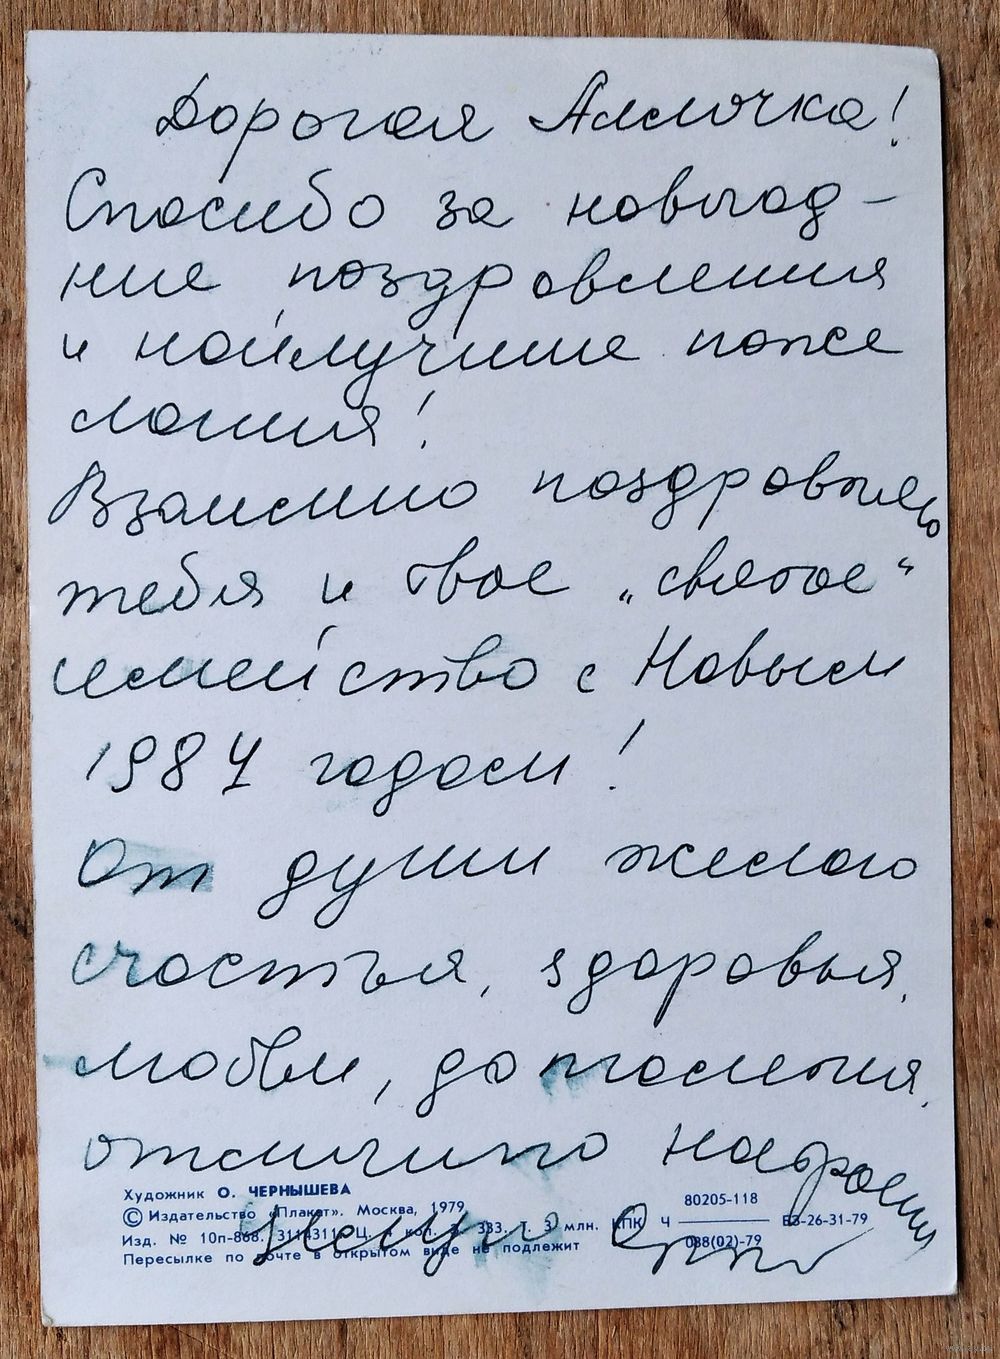 Дорогая Аллочка!
Спасибо за новогод-
ние поздравления
и наилучшие поже
лания!
Взаимно поздравляю
тебя и твое „святое“
семейство с Новым
1984 годом!
От души желаю
счастья, здоровья,
любви, долголетия,
отличного настроения
Художник О. ЧЕРНЫШЕВА
© Издательство «Плакат». Москва, 1979
Изд. № 10п-868. Ц. коп. 333. Т. 3 млн. КПК
Пересылке по почте в открытом виде не подлежит
80205-118
Ч БЗ-26-31-79
088(02)-79